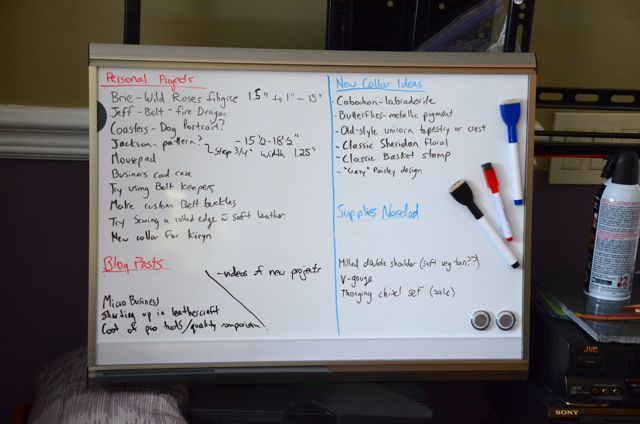 Personal Projects
Brie - Wild Roses filigree 1.5" to 1" - 15"
Jeff - Belt - fire Dragon
Coasters - Dog Portrait?
Jackson - pattern? - 15 1/2 - 18 1/2"
Step 3/4" width 1.25"
Moosepad
Business card case
Try using Belt Keepers
Make custom Belt buckles
Try Sewing a rolled edge in soft leather
New collar for Kieyn
Blog Posts
- videos of new projects
Micro Business
Starting up in leathercraft
Cost of pro tools/quality comparison
New Collar Ideas
- Cabochon - labradorite
- Butterflies - metallic pigment
- Old-style unicorn tapestry or crest
- Classic Sheridan floral
- Classic Basket stamp
- "Crazy" Paisley design
Supplies Needed
Milled double shoulder (soft veg tan??)
V-gouge
Thonging chisel set (sale)
JVC
SONY